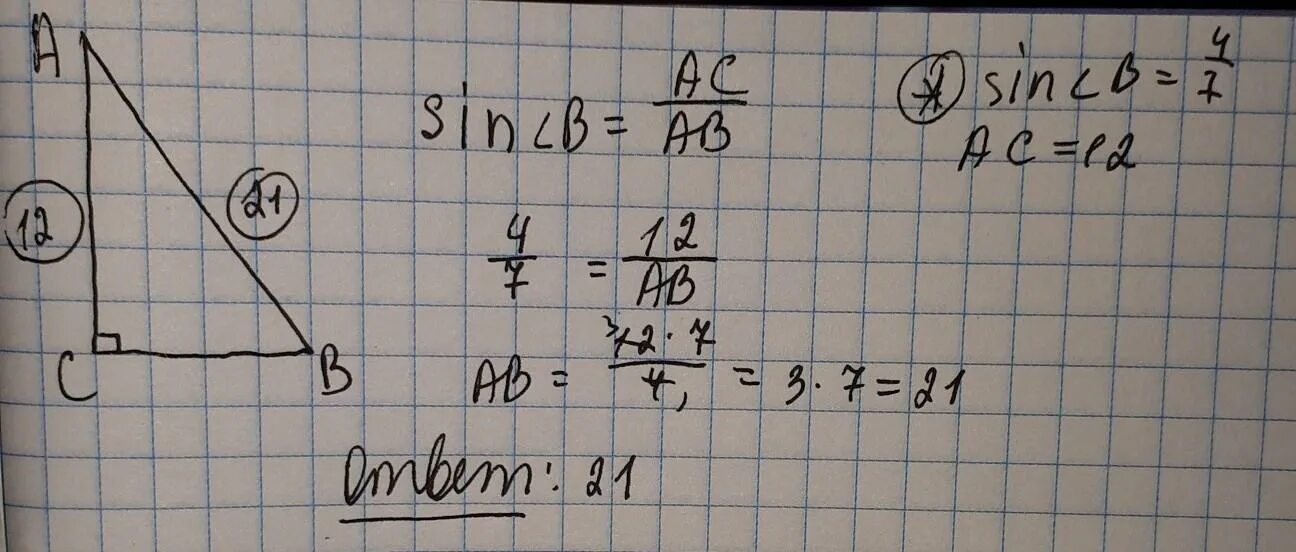 A
12
21
C
B
sin∠B = AC/AB
4/7 = 12/AB
AB = 12·7/4 = 3·7 = 21
Ответ: 21
sin∠B = 4/7
AC = 12